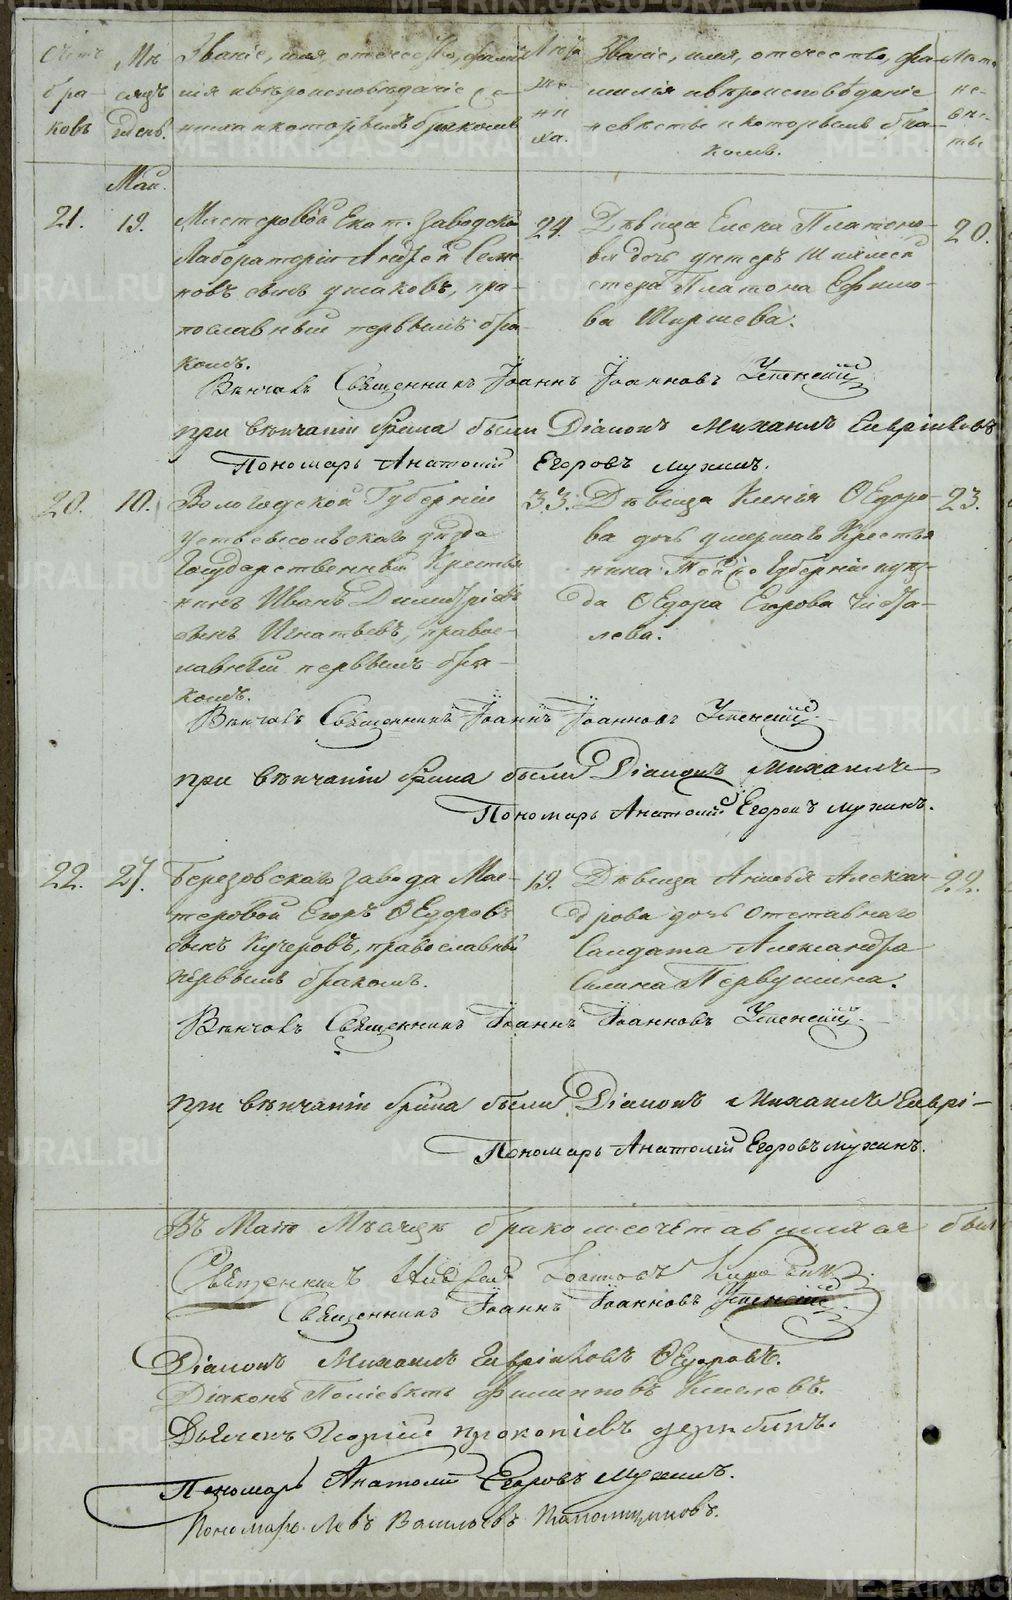 Счетъ бра- ковъ
Мѣ сяцъ и день.
Званіе, имя, отчество, фами
лія и вѣроисповѣданіе же-
ниха и которымъ бракомъ
Лѣта же- ни ха.
Званіе, имя, отчество, фа-
милія и вѣроисповѣданіе
невѣсты и которымъ бра-
комъ.
Лѣта не- вѣс- ты
Май.
21. 19. Мастеровой Екат. Заводской
Лабораторіи Андрей Семе
новъ сынъ Ушаковъ, пра-
вославный первымъ бра-
комъ.
24. Дѣвица Елена Платоно-
ва дочь унтеръ Шихмей
стера Платона Ефимо-
ва Ширшева.
20.
Вѣнчалъ Священникъ Іоаннъ Іоанновъ Успенскій
при вѣнчаніи брака были Діаконъ Михаилъ Гавріиловъ
Пономарь Анатолій Егоровъ Мухинъ.
20. 10. Вологодской Губерніи
Устьсысольскаго уѣзда
Государственный Крестья
нинъ Иванъ Димитріевъ
сынъ Игнатьевъ, правос-
лавный первымъ бра-
комъ.
33. Дѣвица Ксенія Ѳедоро-
ва дочь умершаго Крестья
нина Той же Губерніи и уѣз-
да Ѳедора Егорова
лева.
23.
Вѣнчалъ Священникъ Іоаннъ Іоанновъ Успенскій.
при вѣнчаніи брака были Діаконъ Михаилъ
Пономарь Анатолій Егоровъ Мухинъ.
22. 27. Березовскаго завода Мас-
теровой Егоръ Ѳедоровъ
сынъ Кучеровъ, православный
первымъ бракомъ.
19. Дѣвица Анисья Алексан-
дрова дочь отставнаго
Салдата Александра
Силина Первушина.
22.
Вѣнчалъ Священникъ Іоаннъ Іоанновъ Успенскій.
при вѣнчаніи брака были Діаконъ Михаилъ Гаврі-
Пономарь Анатолій Егоровъ Мухинъ.
Въ Маѣ Мѣсяцѣ бракомъ сочетавшихся было
Священникъ Николай Іоанновъ
Священникъ Іоаннъ Іоанновъ Успенскій.
Діаконъ Михаилъ Гавріиловъ Ѳедоровъ.
Діаконъ Филипповъ Киселевъ.
Дьячекъ Георгій Прокопіевъ
Пономарь Анатолій Егоровъ Мухинъ.
Пономарь Левъ Васильевъ
METRIKI.GASO-URAL.RU